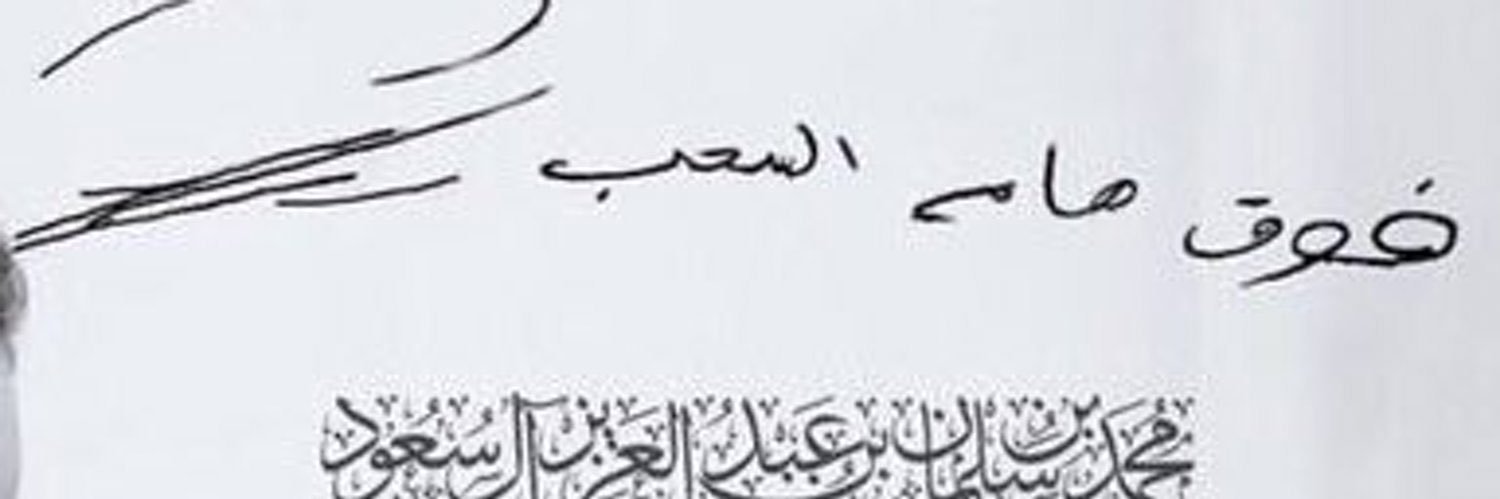 فوق هام السحب
مُحمّد بن سلمان بن عبد العزيز آل سعود